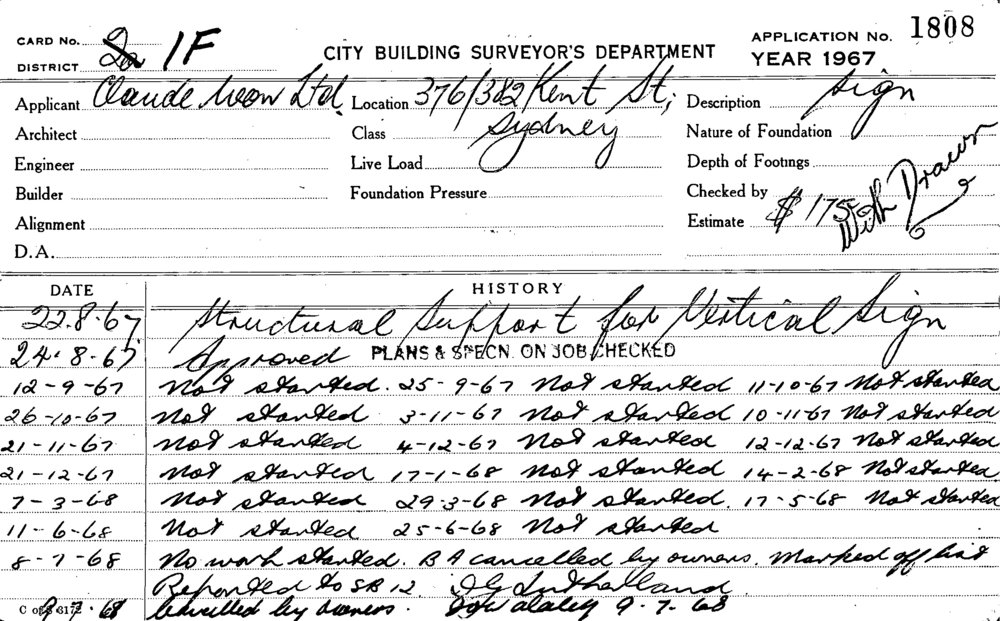 CARD No. 2a 1F
DISTRICT
CITY BUILDING SURVEYOR'S DEPARTMENT
APPLICATION No. 1808
YEAR 1967
Applicant Claude Neon Ltd. Location 376/382 Kent St, Description Sign
Architect Class Sydney Nature of Foundation
Engineer Live Load Depth of Footings
Builder Foundation Pressure Checked by
Alignment Estimate $ 175 With Drawn
D.A.
DATE HISTORY
22.8.67 Structural Support for Vertical Sign
24.8.67 Approved PLANS & SPECN. ON JOB CHECKED
12-9-67 Not started. 25-9-67 Not started 11-10-67 Not started
26-10-67 Not started 3-11-67 Not started 10-11-67 Not started
21-11-67 Not started 4-12-67 Not started 12-12-67 Not started
21-12-67 Not started 17-1-68 Not started 14-2-68 Not started.
7-3-68 Not started 29-3-68 Not started. 17-5-68 Not started
11-6-68 Not started 25-6-68 Not started
8-7-68 No work started. BA cancelled by owners. Marked off list
Reported to SB 12
9.7.68 Cancelled by owners. 9-7-68